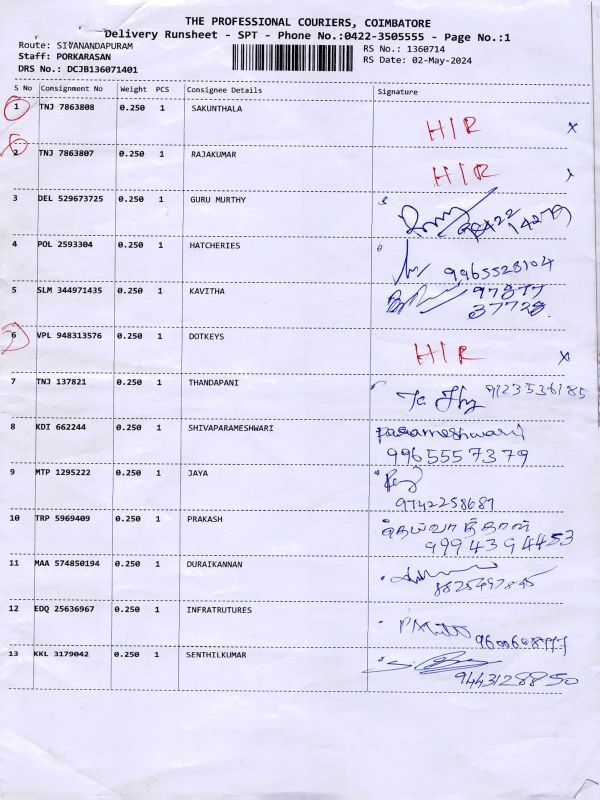 THE PROFESSIONAL COURIERS, COIMBATORE
Delivery Runsheet - SPT - Phone No.:0422-3505555 - Page No.:1
Route: SIVANANDAPURAM
RS No.: 1360714
Staff: PORKARASAN
RS Date: 02-May-2024
DRS No.: DCJB136071401
S No Consignment No Weight PCS Consignee Details Signature
1 TNJ 7863808 0.250 1 SAKUNTHALA
H/R x
2 TNJ 7863807 0.250 1 RAJAKUMAR
H/R x
3 DEL 529673725 0.250 1 GURU MURTHY
14279
4 POL 2593304 0.250 1 HATCHERIES
9965528104
5 SLM 344971435 0.250 1 KAVITHA
97877
37728
6 VPL 948313576 0.250 1 DOTKEYS
H/R x
7 TNJ 137821 0.250 1 THANDAPANI
9123536185
8 KDI 662244 0.250 1 SHIVAPARAMESHWARI
parameshwari
9965557379
9 MTP 1295222 0.250 1 JAYA
9742258687
10 TRP 5969409 0.250 1 PRAKASH
தெய்வாத்தாள்
9994394453
11 MAA 574850194 0.250 1 DURAIKANNAN
8825497845
12 EDQ 25636967 0.250 1 INFRATRUTURES
13 KKL 3179042 0.250 1 SENTHILKUMAR
9443128850